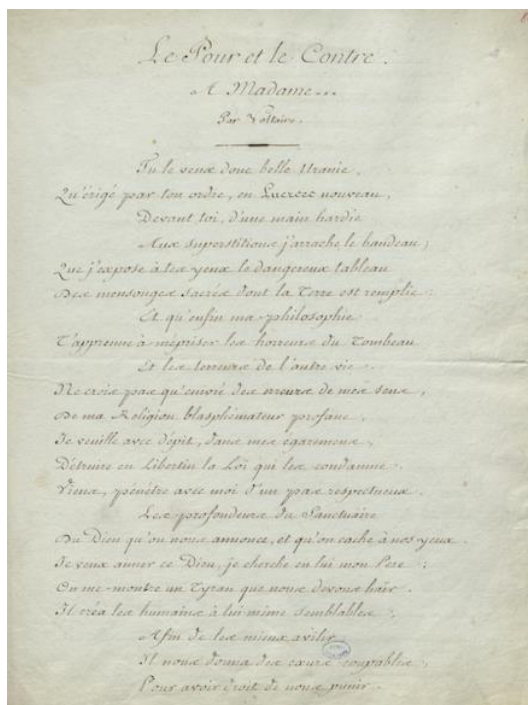 Le Pour et le Contre.
A Madame...
Par Voltaire.
Tu le veux donc belle Uranie,
Qu'érigé par ton ordre, en Lucrece nouveau,
Devant toi, d'une main hardie
Aux superstitions j'arrache le bandeau;
Que j'expose à tes yeux le dangereux tableau
Des mensonges sacrés dont la Terre est remplie:
Et qu'enfin ma philosophie
T'apprenne à mépriser les horreurs du Tombeau
Et les terreurs de l'autre vie.
Ne crois pas qu'enivré des erreurs de mes sens,
De ma Religion blasphémateur profane,
Je veuille avec dépit, dans mes égaremens,
Détruire en Libertin la Loi qui les condamne.
Viens, pénétre avec moi d'un pas respectueux,
Les profondeurs du Sanctuaire
Du Dieu qu'on nous annonce, et qu'on cache à nos yeux.
Je veux aimer ce Dieu, je cherche en lui mon Pere:
On me montre un Tyran que nous devons haïr.
Il créa les humains à lui même semblables;
Afin de les mieux avilir
Il nous donna des cœurs coupables,
Pour avoir droit de nous punir.